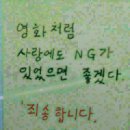 영화처럼
사랑에도 NG가
있었으면 좋겠다.
"죄송합니다.